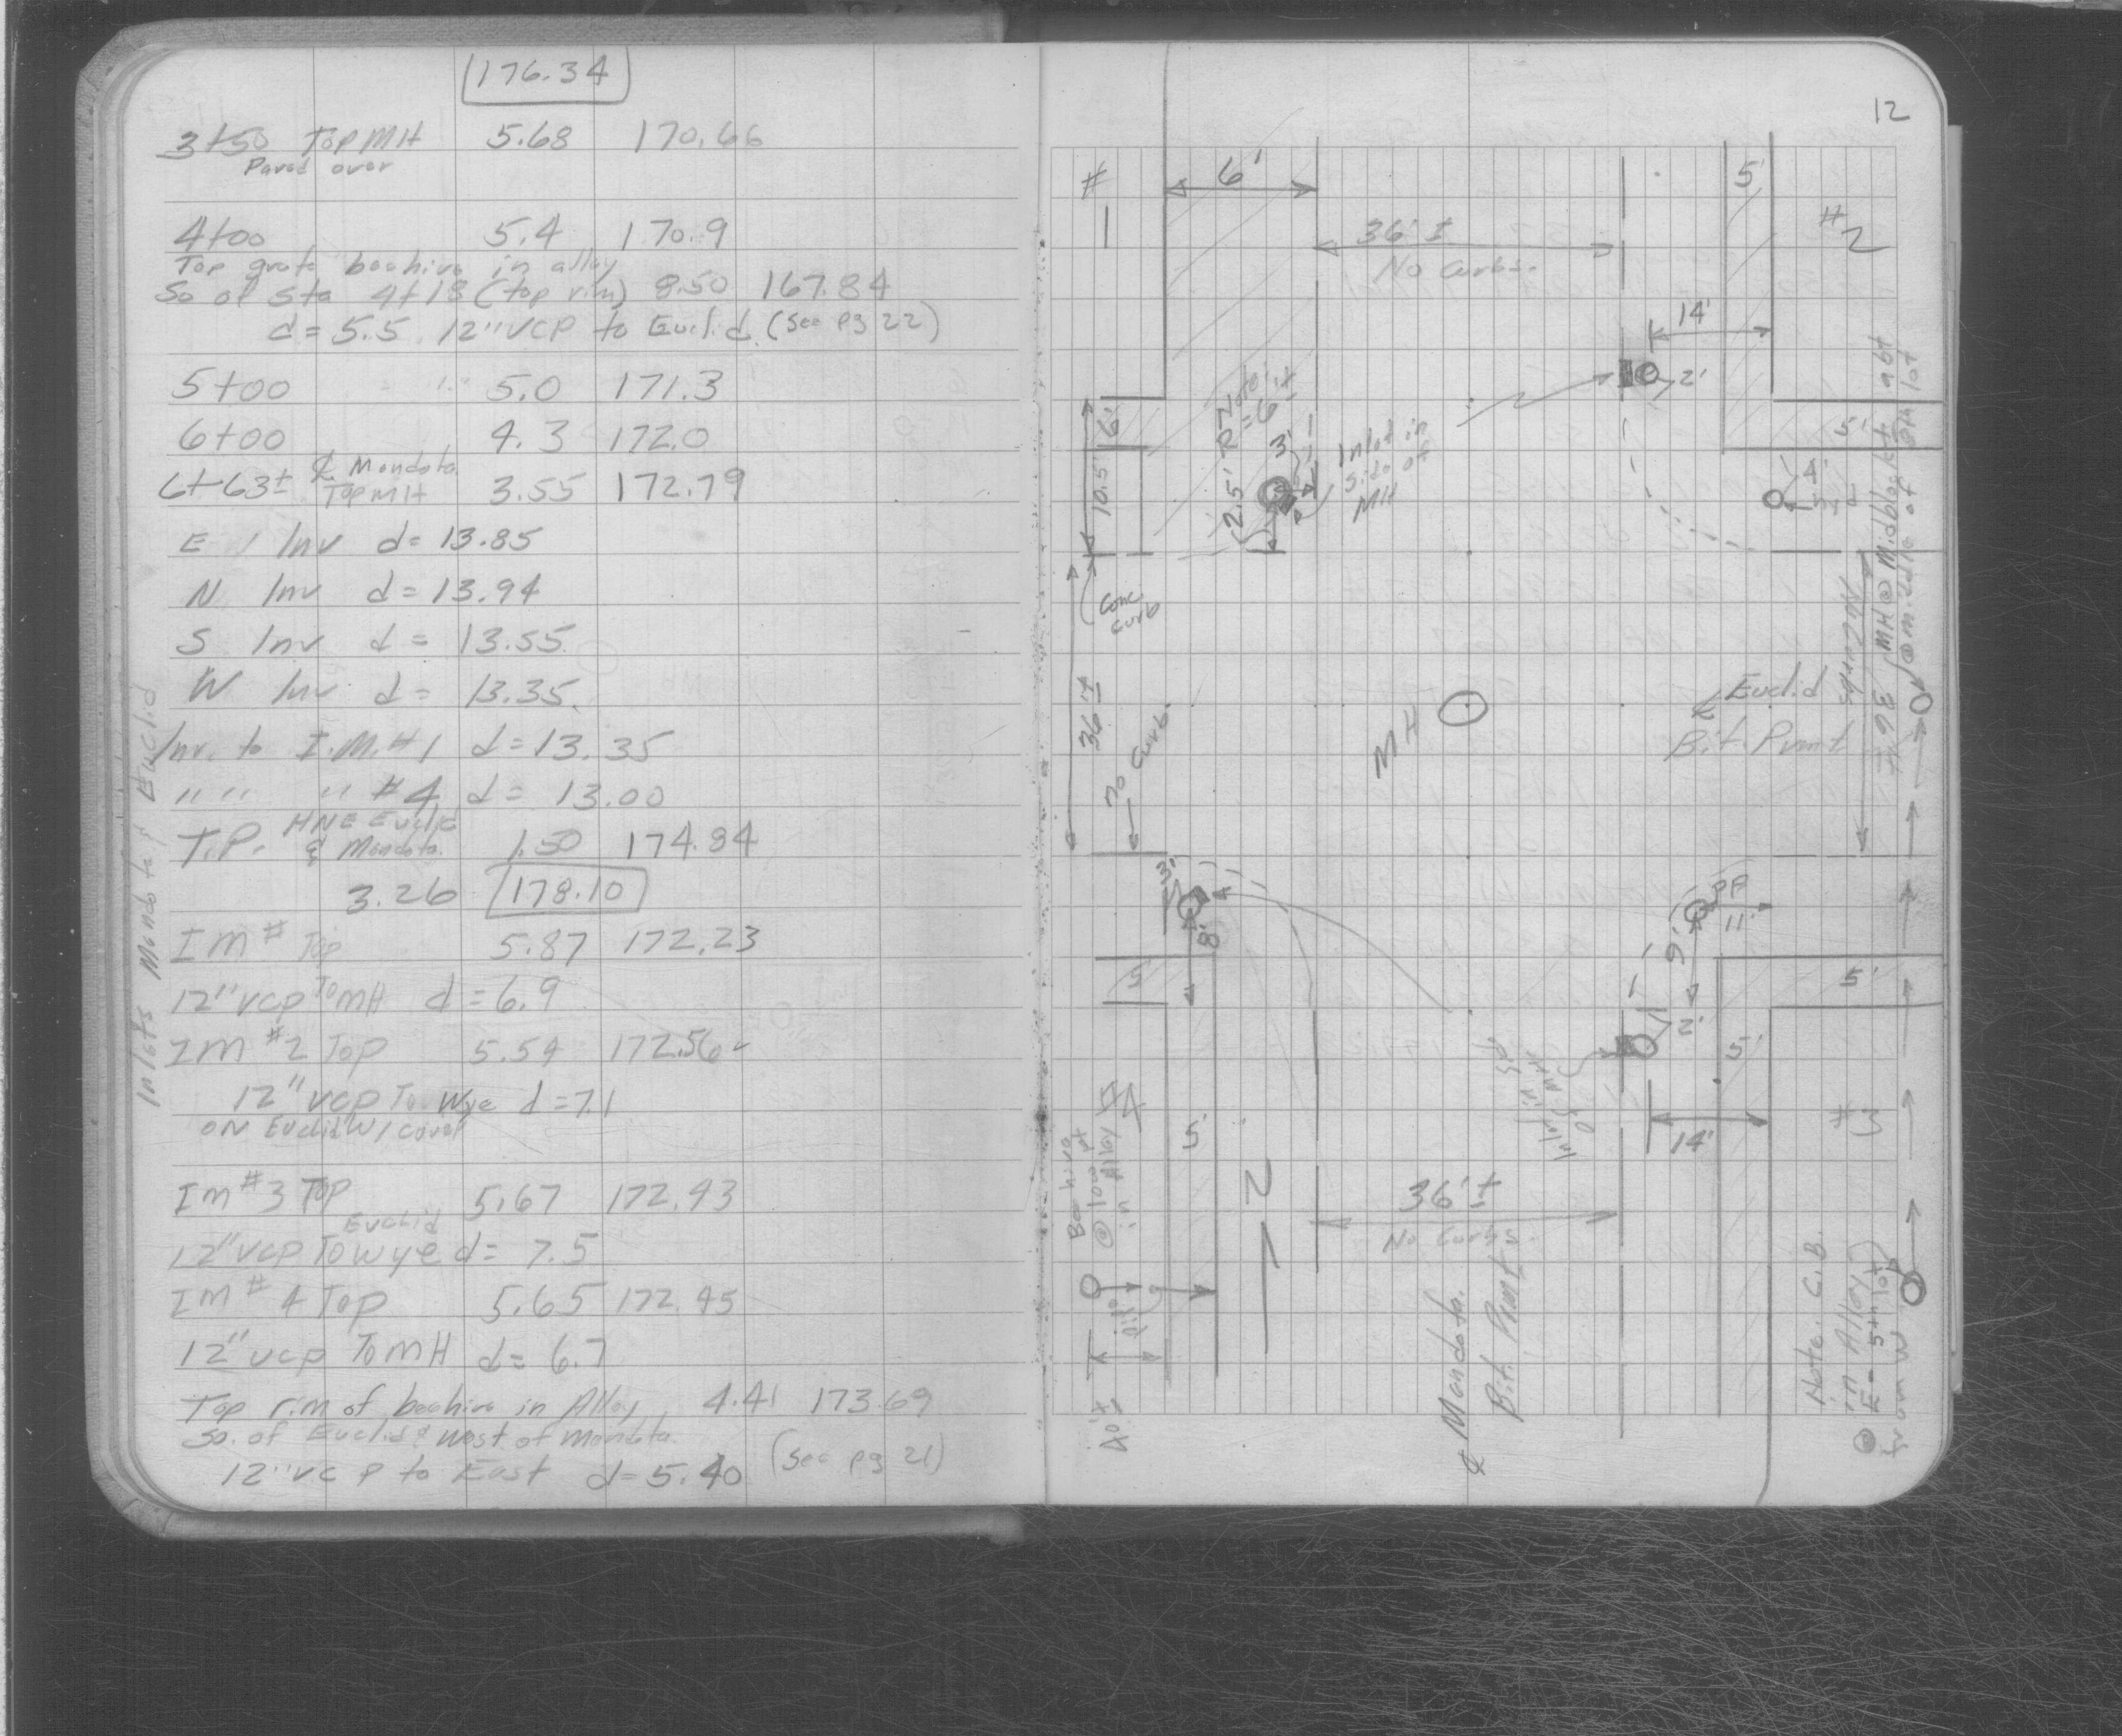 176.34
3+50 Top MH 5.68 170.66
Paved over
4+00 5.4 170.9
Top grate beehive in alley
So of Sta 4+18 (top rim) 8.50 167.84
d = 5.5 12" VCP to Euclid (See pg 22)
5+00 " " 5.0 171.3
6+00 4.3 172.0
6+63± ℄ Mendota Top MH 3.55 172.79
E Inv d = 13.85
N Inv d = 13.94
S Inv d = 13.55
W Inv d = 13.35
Inv. to I.M.#1 d = 13.35
" " " #4 d = 13.00
T.P. HNE Euclid & Mendota 1.50 174.84
3.26 178.10
IM # Top 5.87 172.23
12" VCP To MH d = 6.9
IM #2 Top 5.54 172.56
12" VCP To Wye d = 7.1
ON Euclid W/
IM #3 Top 5.67 172.43
12" VCP To Wye Euclid d = 7.5
IM #4 Top 5.65 172.45
12" VCP To MH d = 6.7
Top rim of beehive in Alley 4.41 173.69
So. of Euclid & West of Mendota
12" VCP to East d = 5.40 (See pg 21)
Inlets Mendota & Euclid
12
#1
6'
5'
#2
36'±
No Curbs
14'
2'
Note:
R = 6'±
3'
2.5'
Inlet in
side of
MH
6'
10.5'
5'
4'
Conc
curb
36'±
no Curb
MH
℄ Euclid
Bit. Pvmt
No Curbs
36'±
MH @ Midblock
@ middle of 8th lot
3'
8'
PP
11'
9'
5'
5'
2'
5'
Inlet in
14'
#3
#4
Beehive
@ low pt
in Alley
5'
N
36'±
No Curbs
℄ Mendota
Bit. Pvmt
40'±
Note: C.B.
in Alley
@ E - 5th lot
from W